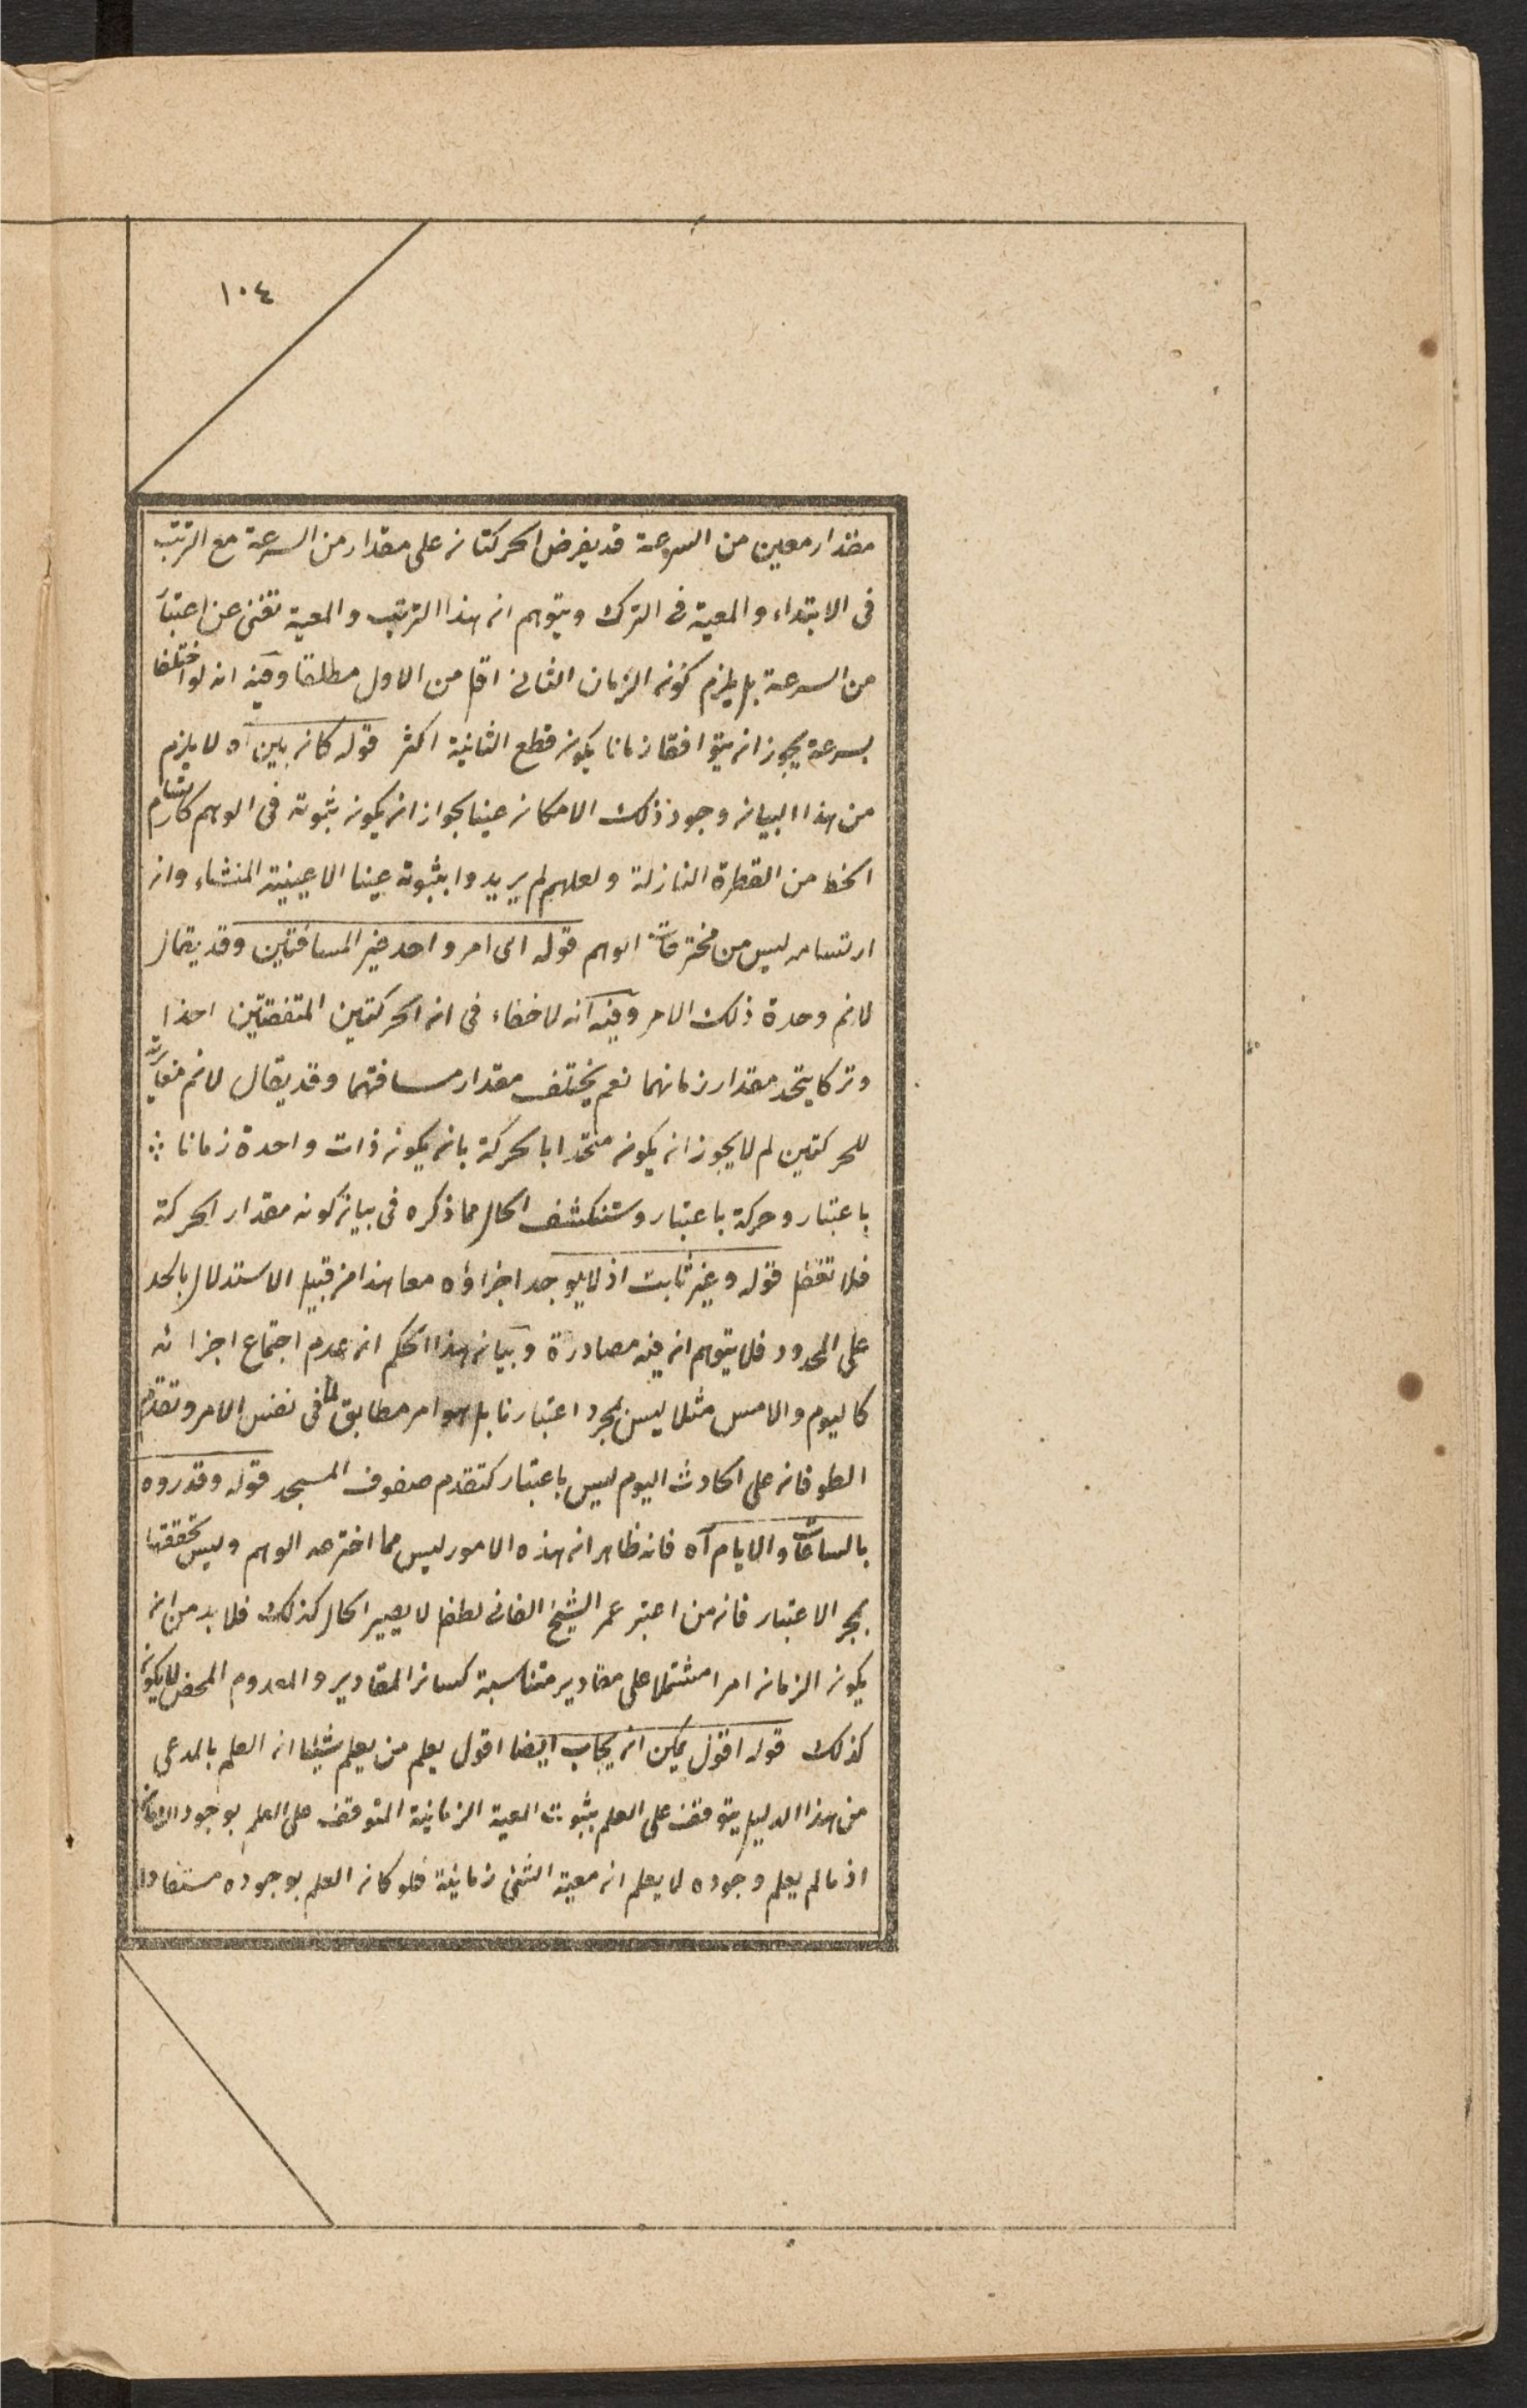 ١٠٤
مقدار معين من السرعة قد يفرض الحركتان على مقدار من السرعة مع الترتب
فى الابتداء والمعية فى الترك ويتوهم ان هذا الترتيب والمعية تغنى عن اعتبار
من السرعة بل يلزم كون الزمان الثانى اقل من الاول مطلقا وفيه انه لو اختلفا
بسرعة يجوز ان يتوافقا زمانا يكون قطع الثانية اكثر قوله كان بين آه لا يلزم
من هذا البيان وجود ذلك الامكان عينا لجواز ان يكون ثبوته فى الوهم كارتسام
الخط من القطرة النازلة ولعلهم لم يريدوا بثبوته عينا الا عينية المنشاء وان
ارتسامه ليس من مخترعات الوهم قوله الى امر واحد غير المسافتين وقد يقال
لانم وحدة ذلك الامر وفيه انه لا خفاء فى ان الحركتين المتفقتين اخذا
وتركا يتحد مقدار زمانهما نعم يختلف مقدار مسافتهما وقد يقال لانم مغايرته
للحركتين لم لا يجوز ان يكون متحدا بالحركة بان يكون ذات واحدة زمانا
باعتبار وحركة باعتبار وستنكشف الحال مما ذكره فى بيان كونه مقدار الحركة
فلا تغفل قوله وغير ثابت اذ لا يوجد اجزاؤه معا هذا من قبيل الاستدلال بالحد
على المحدود فلا يتوهم ان فيه مصادرة وبيان هذا الحكم ان عدم اجتماع اجزائه
كاليوم والامس مثلا ليس بمجرد اعتبارنا بل هو امر مطابق لما فى نفس الامر وتقدم
الطوفان على الحادث اليوم ليس باعتبار كتقدم صفوف المسجد قوله وقدروه
بالساعات والايام آه فانه ظاهر ان هذه الامور ليس مما اخترعه الوهم وليس تحققها
بمجر الاعتبار فان من اعتبر عمر الشيخ الفانى لطفل لا يصير الحال كذلك فلا بد من ان
يكون الزمان امرا مشتملا على مقادير متناسبة كسائر المقادير والمعدوم المحض لا يكون
كذلك قوله اقول يمكن ان يجاب ايضا اقول يعلم من يعلم شيئا ان العلم بالمدعى
من هذا الدليل يتوقف على العلم بثبوت المعية الزمانية المتوقف على العلم بوجود الزمان
اذ ما لم يعلم وجوده لا يعلم ان معية الشئ زمانية فلو كان العلم بوجوده مستفادا